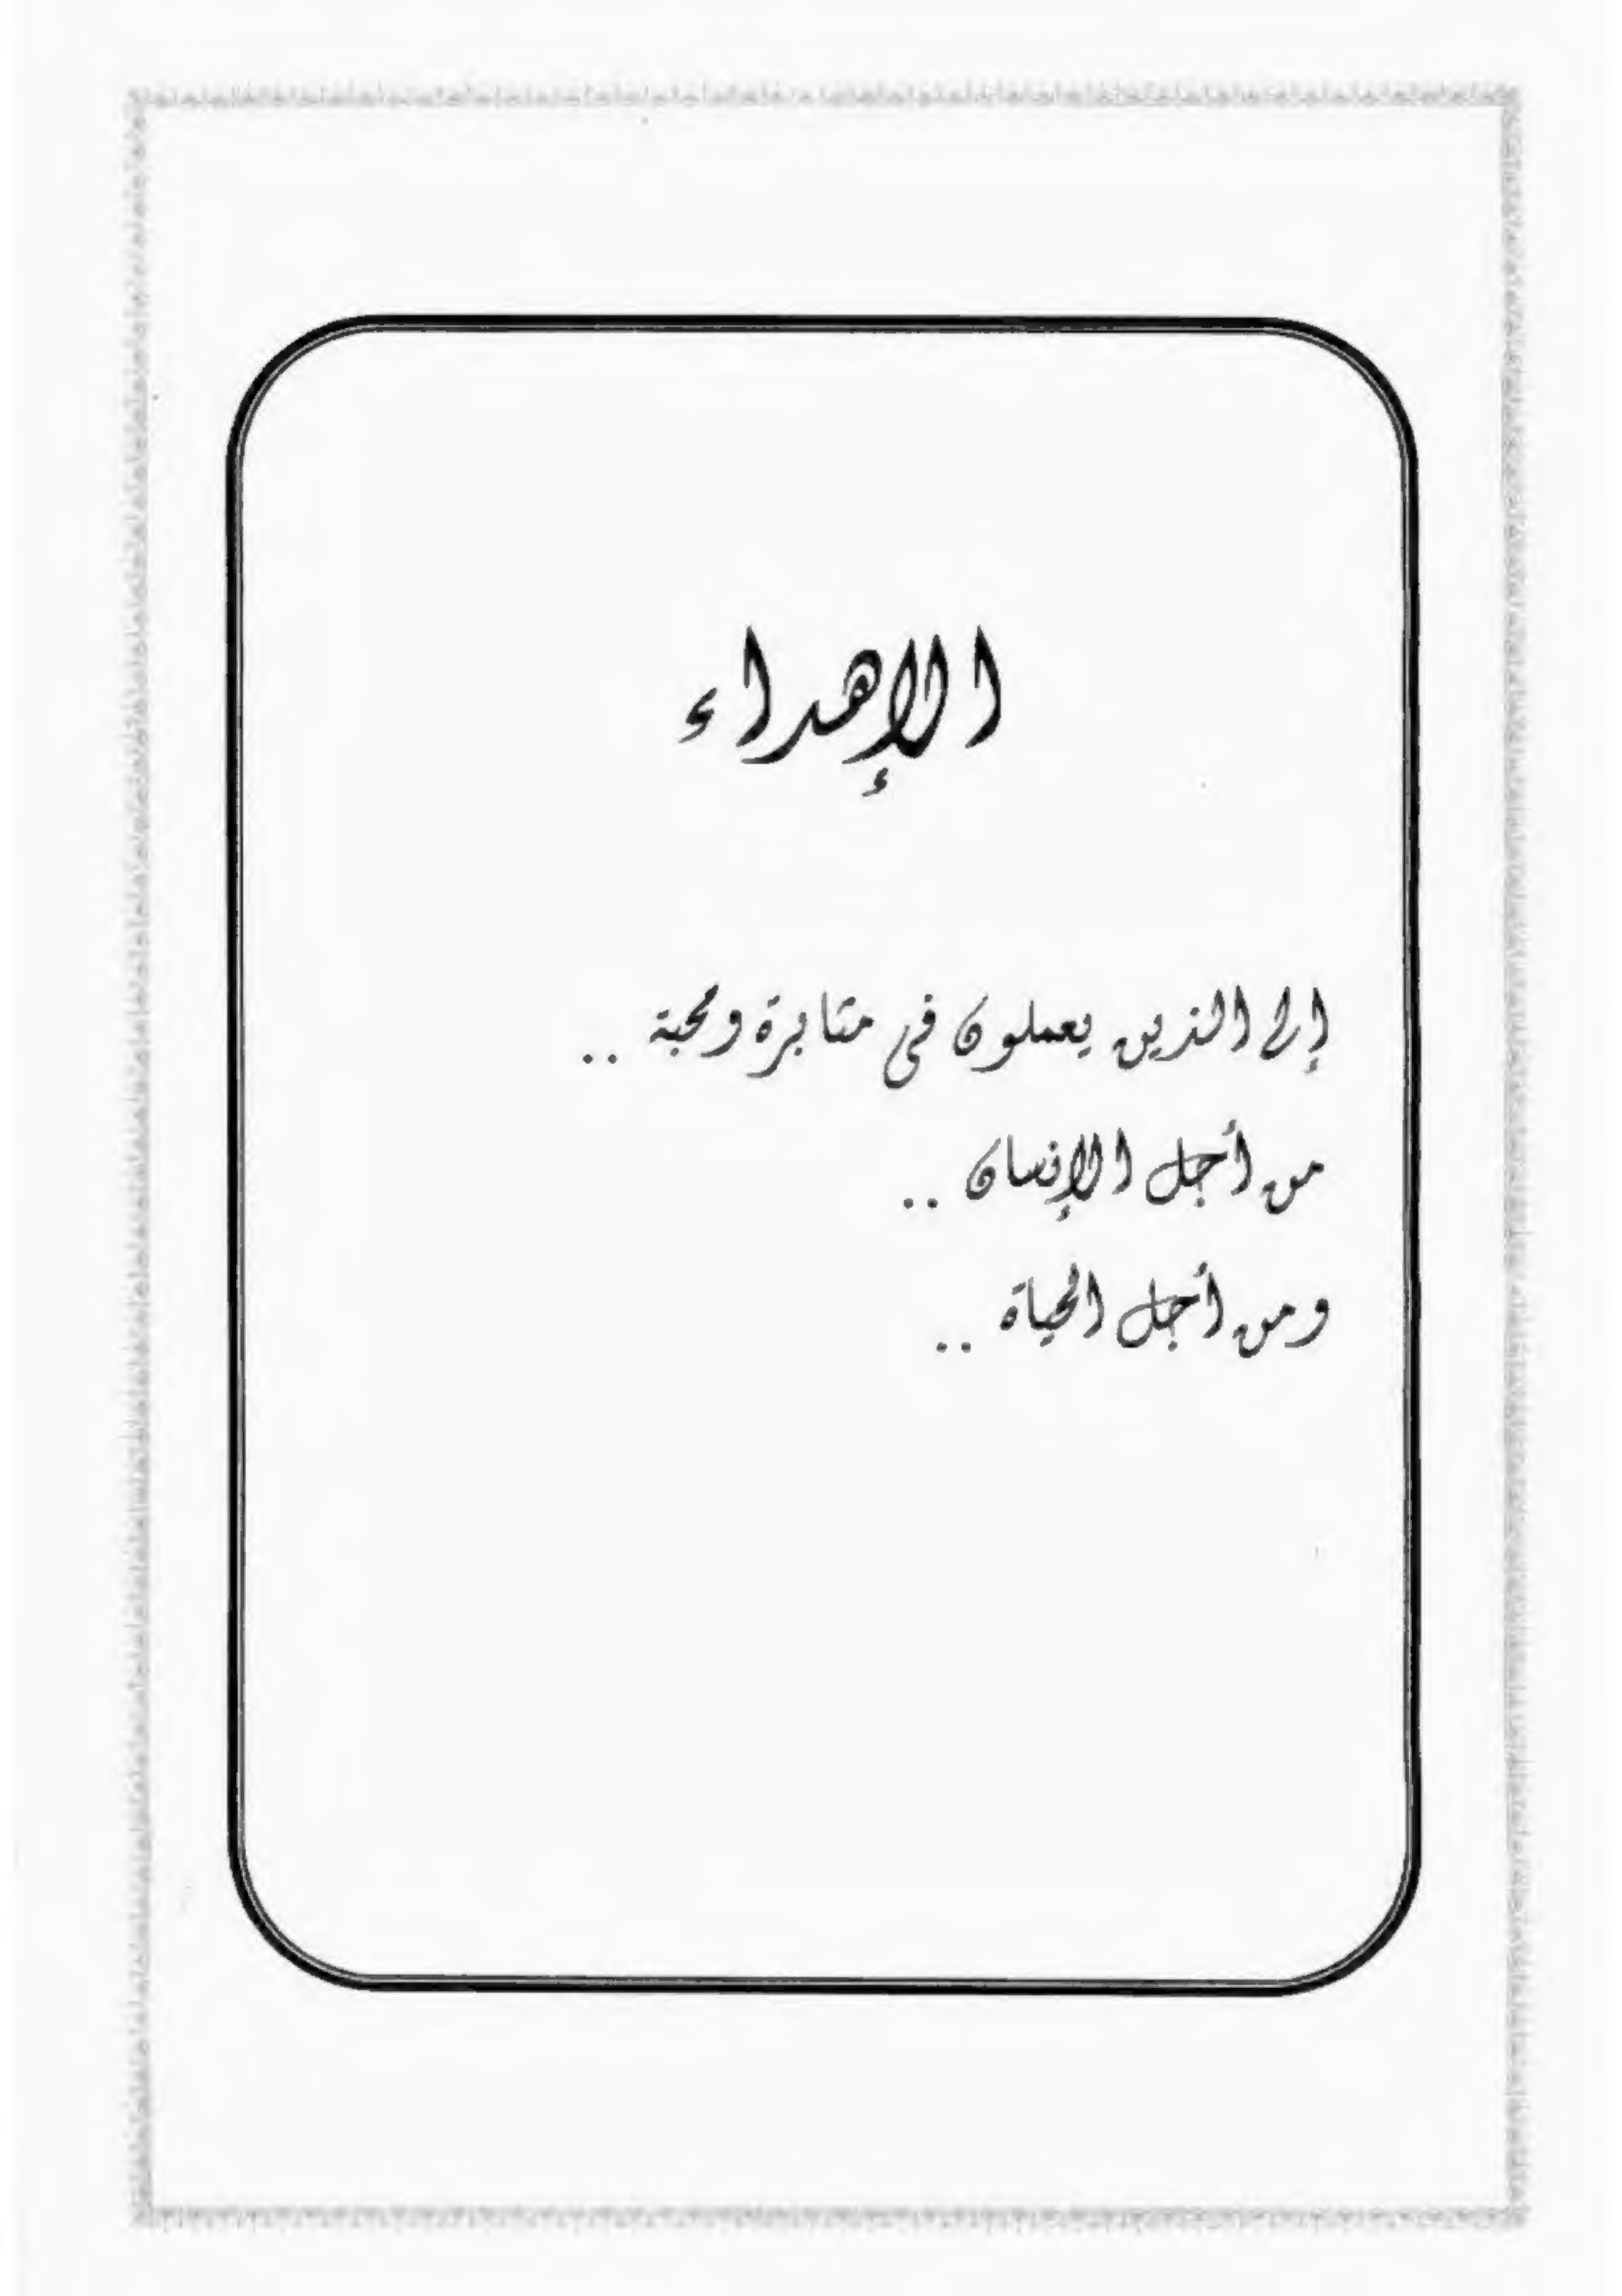 الإهداء
إلى الذين يعملون في مثابرة ومحبة ..
من أجل الإنسان ..
ومن أجل الحياة ..